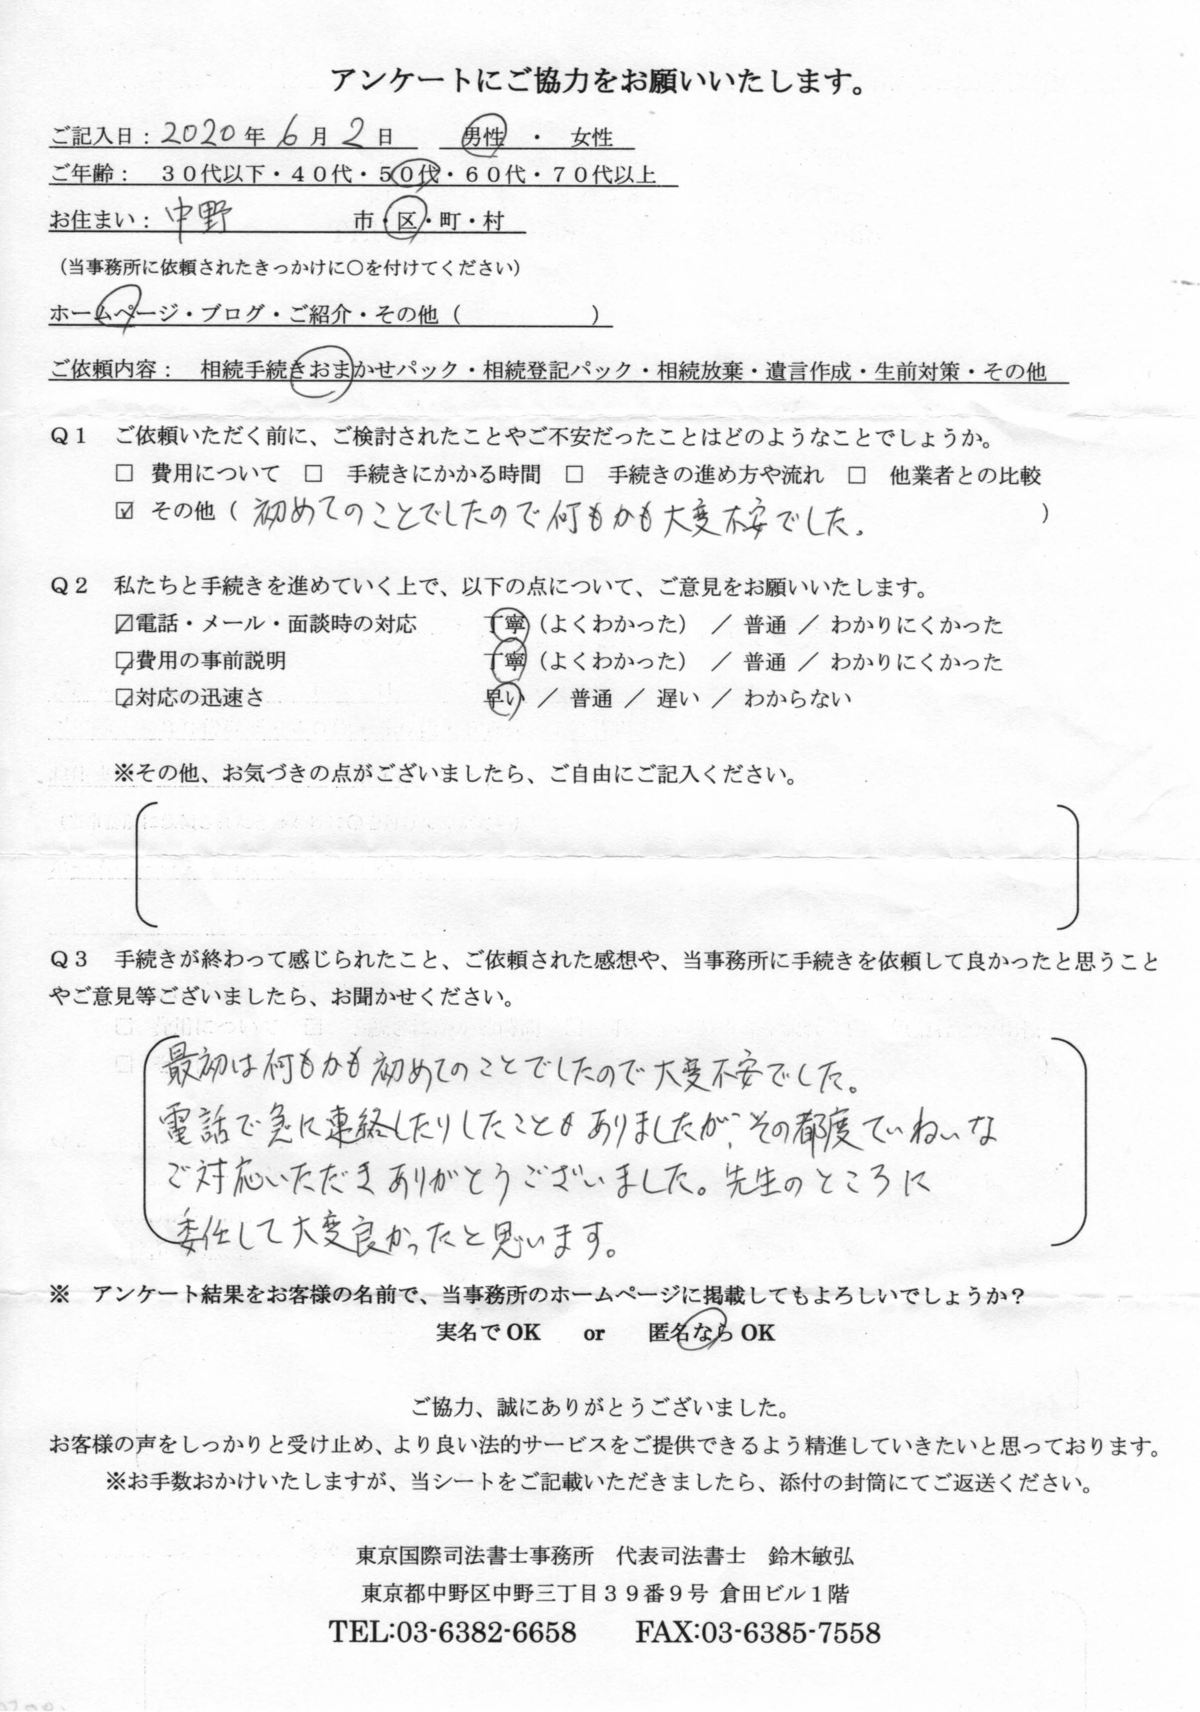 アンケートにご協力をお願いいたします。
ご記入日：2020年 6月 2日　男性　・　女性
ご年齢：　３０代以下・４０代・５０代・６０代・７０代以上
お住まい：中野　市・区・町・村
（当事務所に依頼されたきっかけに〇を付けてください）
ホームページ・ブログ・ご紹介・その他（　　　　　　）
ご依頼内容：　相続手続きおまかせパック・相続登記パック・相続放棄・遺言作成・生前対策・その他
Ｑ１　ご依頼いただく前に、ご検討されたことやご不安だったことはどのようなことでしょうか。
□ 費用について　□ 手続きにかかる時間　□ 手続きの進め方や流れ　□ 他業者との比較
☑ その他（ 初めてのことでしたので何もかも大変不安でした。 ）
Ｑ２　私たちと手続きを進めていく上で、以下の点について、ご意見をお願いいたします。
☑電話・メール・面談時の対応　丁寧（よくわかった） ／ 普通 ／ わかりにくかった
☑費用の事前説明　丁寧（よくわかった） ／ 普通 ／ わかりにくかった
☑対応の迅速さ　早い ／ 普通 ／ 遅い ／ わからない
※その他、お気づきの点がございましたら、ご自由にご記入ください。
Ｑ３　手続きが終わって感じられたこと、ご依頼された感想や、当事務所に手続きを依頼して良かったと思うこと
やご意見等ございましたら、お聞かせください。
最初は何もかも初めてのことでしたので大変不安でした。
電話で急に連絡したりしたこともありましたが、その都度ていねいな
ご対応いただきありがとうございました。先生のところに
委任して大変良かったと思います。
※　アンケート結果をお客様の名前で、当事務所のホームページに掲載してもよろしいでしょうか？
実名で OK　or　匿名なら OK
ご協力、誠にありがとうございました。
お客様の声をしっかりと受け止め、より良い法的サービスをご提供できるよう精進していきたいと思っております。
※お手数おかけいたしますが、当シートをご記載いただきましたら、添付の封筒にてご返送ください。
東京国際司法書士事務所　代表司法書士　鈴木敏弘
東京都中野区中野三丁目３９番９号 倉田ビル１階
TEL:03-6382-6658　FAX:03-6385-7558